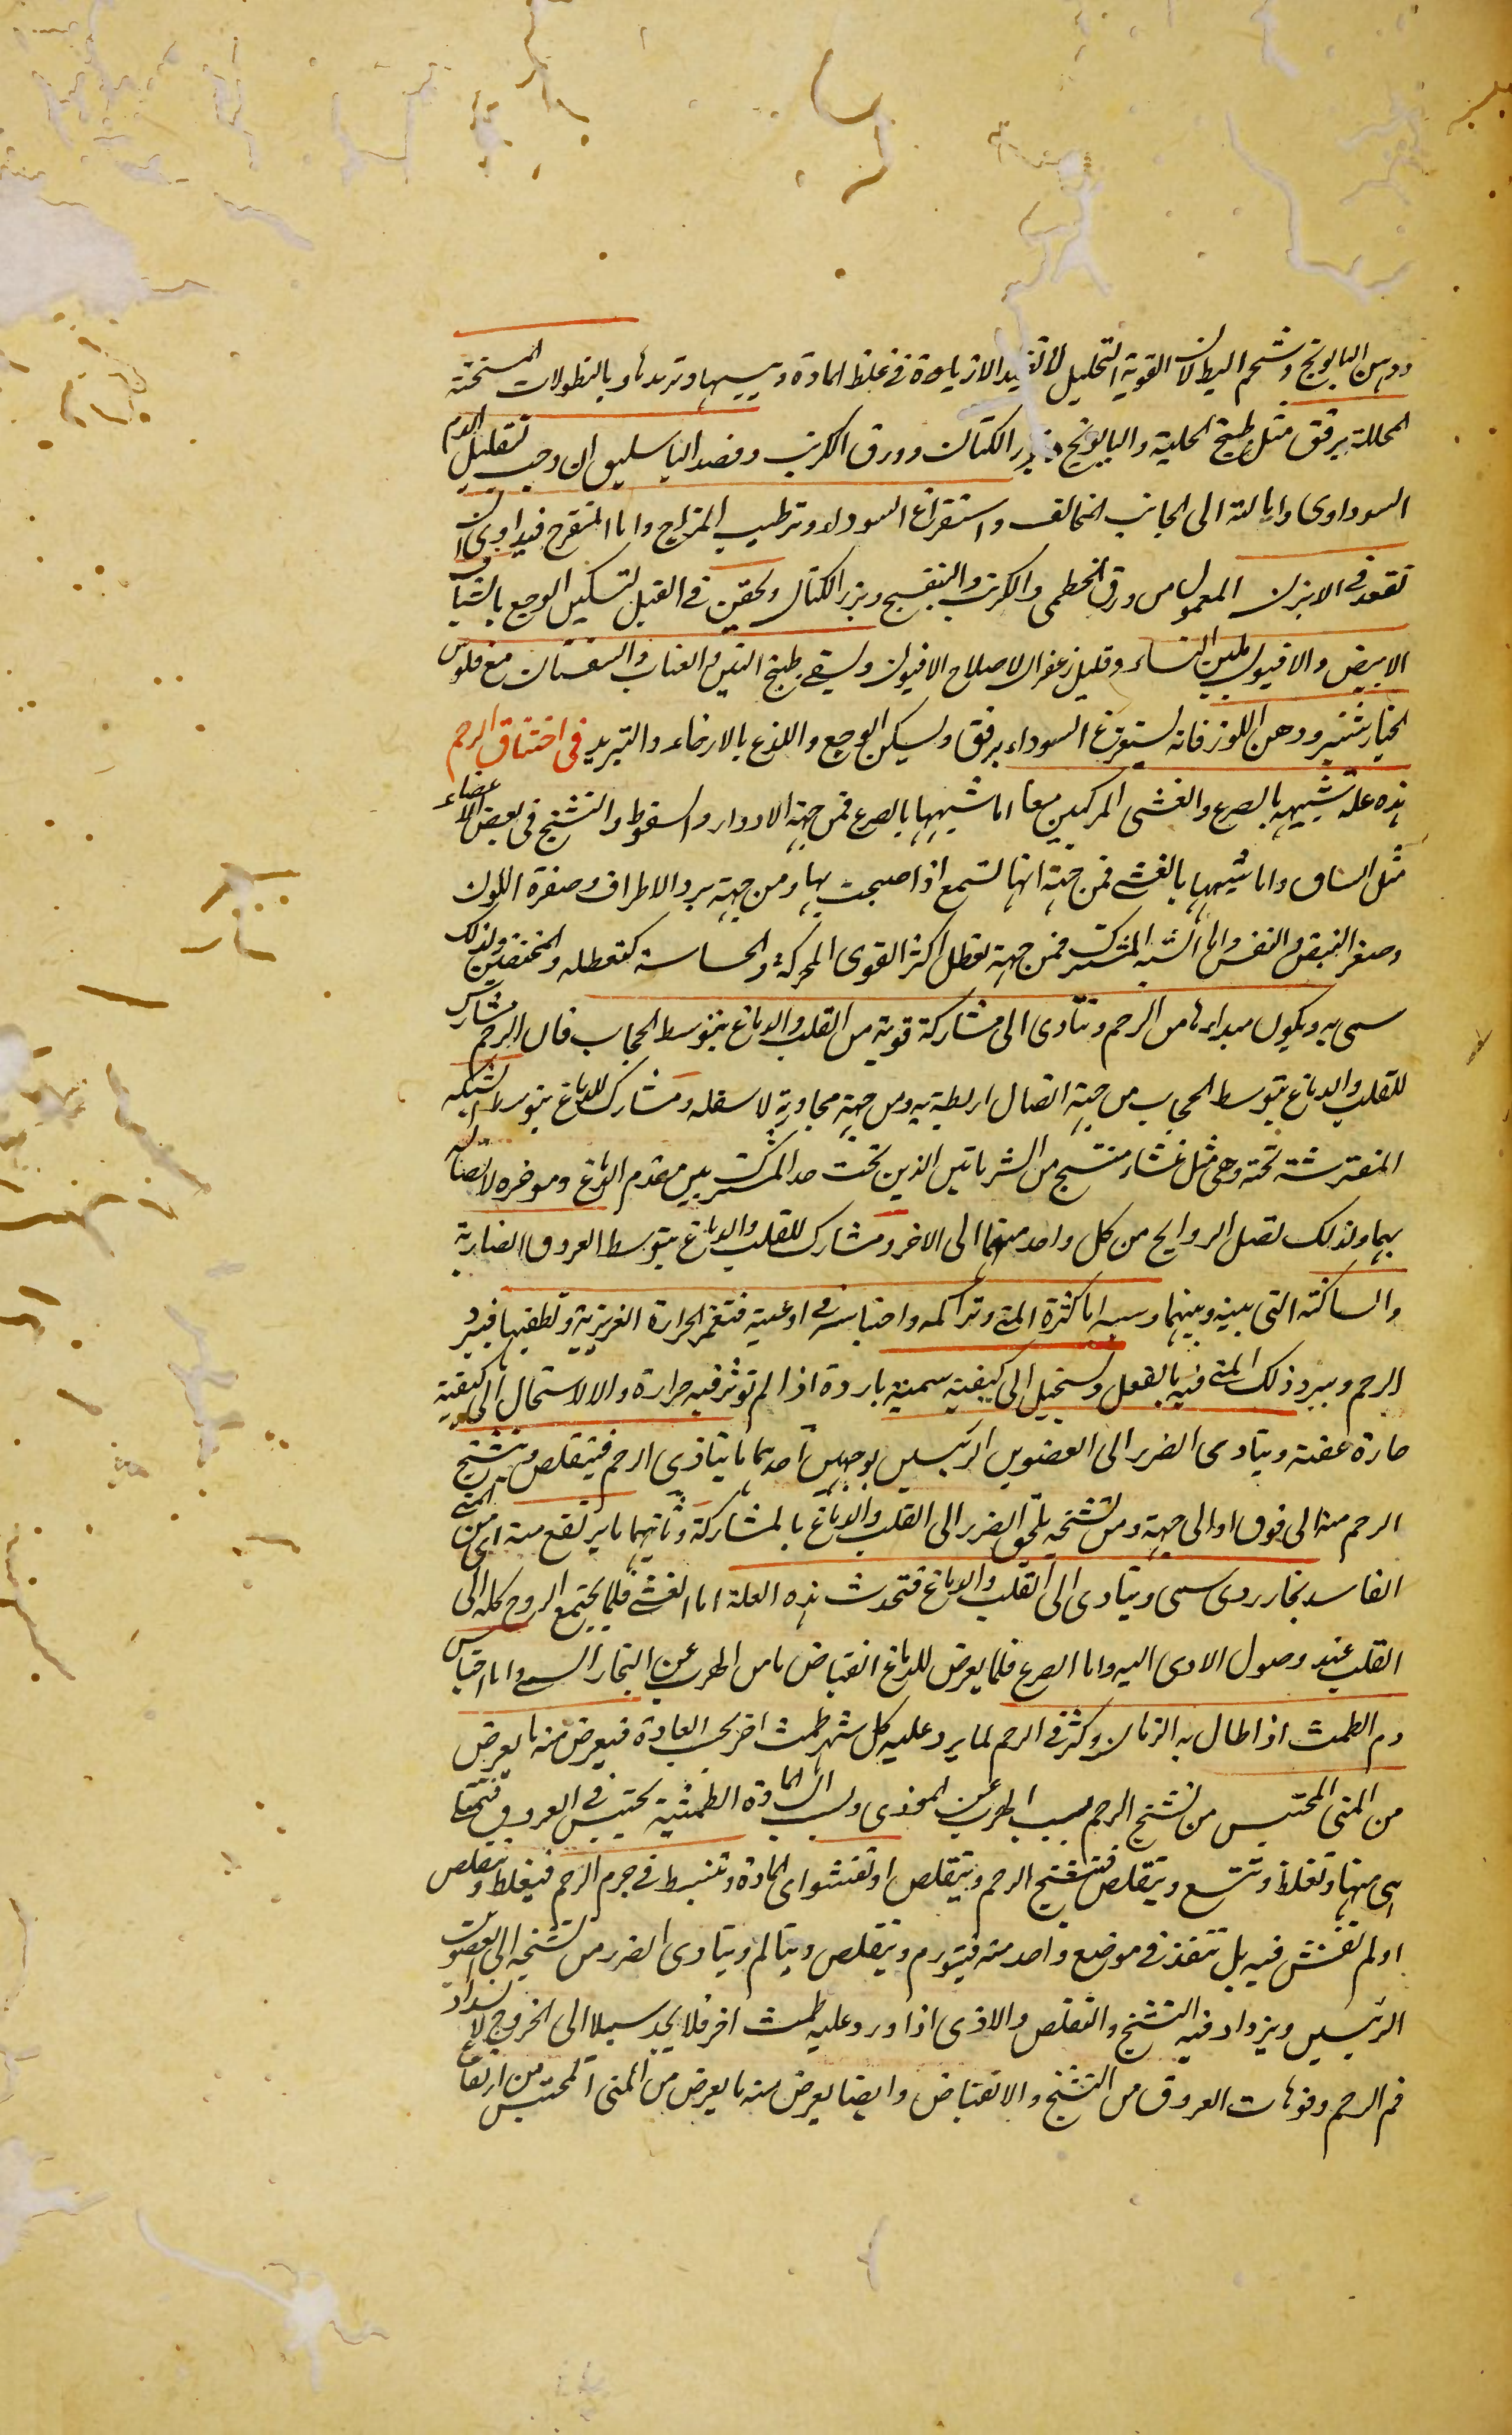 ودهن البابونج وشحم البط لان القوية التحليل لا تفيد الا زيادة فى غلظ المادة ويبسها وتربدها وبالنطولات المسخنة
المحللة برفق مثل طبخ الحلبة والبابونج وبزر الكتان وورق الكرنب وفصد الباسليق ان وجب لتقليل الدم
السوداوى وامالته الى الجانب المخالف واستفراغ السوداء وترطيب المزاج واما المتقرح فيداوى بان
تقعد فى الابزن المعمول من ورق الخطمى والكرنب والبنفسج وبزر الكتان ويحقن فى القبل لتسكين الوجع بالشياف
الابيض والافيون بلبن النساء وقليل زعفران لاصلاح الافيون ويسقى طبخ التين والعناب والسفستان مع فلوس
الخيارشنبر ودهن اللوز فانه يستفرغ السوداء برفق ويسكن الوجع واللذع بالارخاء والتبريد فى اختناق الرحم
هذه علة شبيهة بالصرع والغشى المركبين معا اما شبهها بالصرع فمن جهة الادوار والسقوط والتشنج فى بعض الاعضاء
مثل الساق واما شبهها بالغشى فمن جهة انها تسمع اذا صيحت بها ومن جهة برد الاطراف وصفرة اللون
وصغر النبض والنفس واما الشبه المشترك فمن جهة تعطل اكثر القوى المحركة والحساسة كتعطله والمختنقين ولذلك
سمى به ويكون مبداءها من الرحم وتتادى الى مشاركة قوية من القلب والدماغ بتوسط الحجاب فان الرحم مشارك
للقلب والدماغ بتوسط الحجاب من جهة اتصال اربطة به ومن جهة مجاورته لاسفله ومشارك للدماغ بتوسط الشبكه
المفترشة تحته وهى مثل غشاء منتسج من الشرياتين الذين تحت حد المشترك بين مقدم الدماغ وموخره لاتصاله
بهما ولذلك تصل الروايح من كل واحد منهما الى الاخر ومشارك للقلب والدماغ بتوسط العروق الضاربة
والساكنة التى بينه وبينهما وسببه اما كثرة المنى وتراكمه واحتباسه فى اوعيته فتغمر الحرارة الغريزية وتطفيها فيبرد
الرحم ويبرد ذلك المنى فيه بالفعل ويستحيل الى كيفية سمية باردة اذا لم توثر فيه حرارة والا لاستحال الى كيفية
حارة عفنة ويتادى الضرر الى العضوين الرئيسين بوجهين احدهما ما يتاذى الرحم فيتقلص ويتشنج
الرحم منه الى فوق او الى جهة ومن تشنجه يلحق الضرر الى القلب والدماغ بالمشاركة وثانيهما ما يرتفع منه اى من المنى
الفاسد بخار ردى سمى ويتادى الى القلب والدماغ فتحدث هذه العلة اما الغشى فلما يجتمع الروح كله الى
القلب عند وصول الاذى اليه واما الصرع فلما يعرض للدماغ انقباض ما من الهرب عن البخار السمى واما احتباس
دم الطمث اذا طال به الزمان وكثر فى الرحم لما يرد عليه كل شهر طمث اخر بحسب العادة فيعرض منه ما يعرض
من المنى المحتبس من تشنج الرحم بسبب الهرب عن الموذى ولسبب ان المادة الطمثية تحتبس فى العروق فتمتلئ
هى منها وتغلظ وتتسع وتتقلص فتتشنج الرحم ويتقلص او تفشو اى المادة وتنبسط فى جرم الرحم فيغلظ ويتقلص
او لم تفش فيه بل تنفذ فى موضع واحد منه فيتورم ويتقلص ويتالم ويتادى الضرر من تشنجه الى العضوين
الرئيسين ويزداد فيه التشنج والتقلص والاذى اذا ورد عليه طمث اخر فلا يجد سبيلا الى الخروج لانسداد
فم الرحم وفوهات العروق من التشنج والانقباض وايضا يعرض منه ما يعرض من المنى المحتبس من ارتفاع